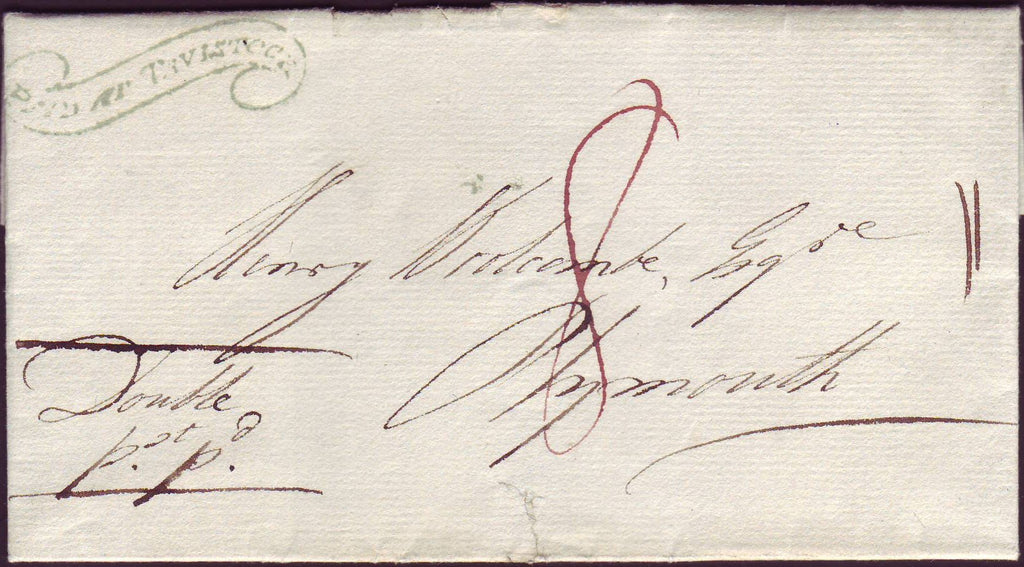 PD AT TAVISTOCK
8
Henry Woolcombe, Esqre
||
Plymouth
Double
pst pd